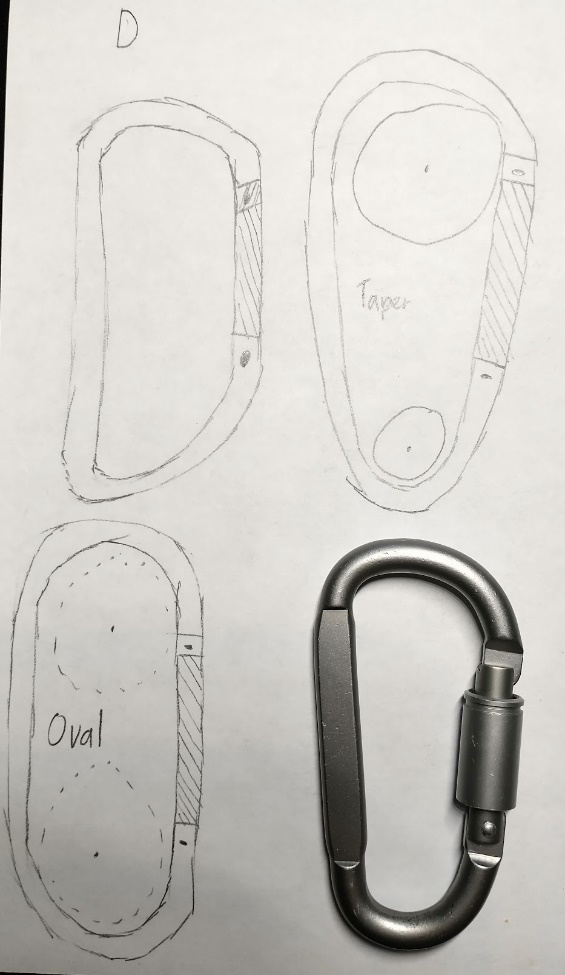 D
Taper
Oval